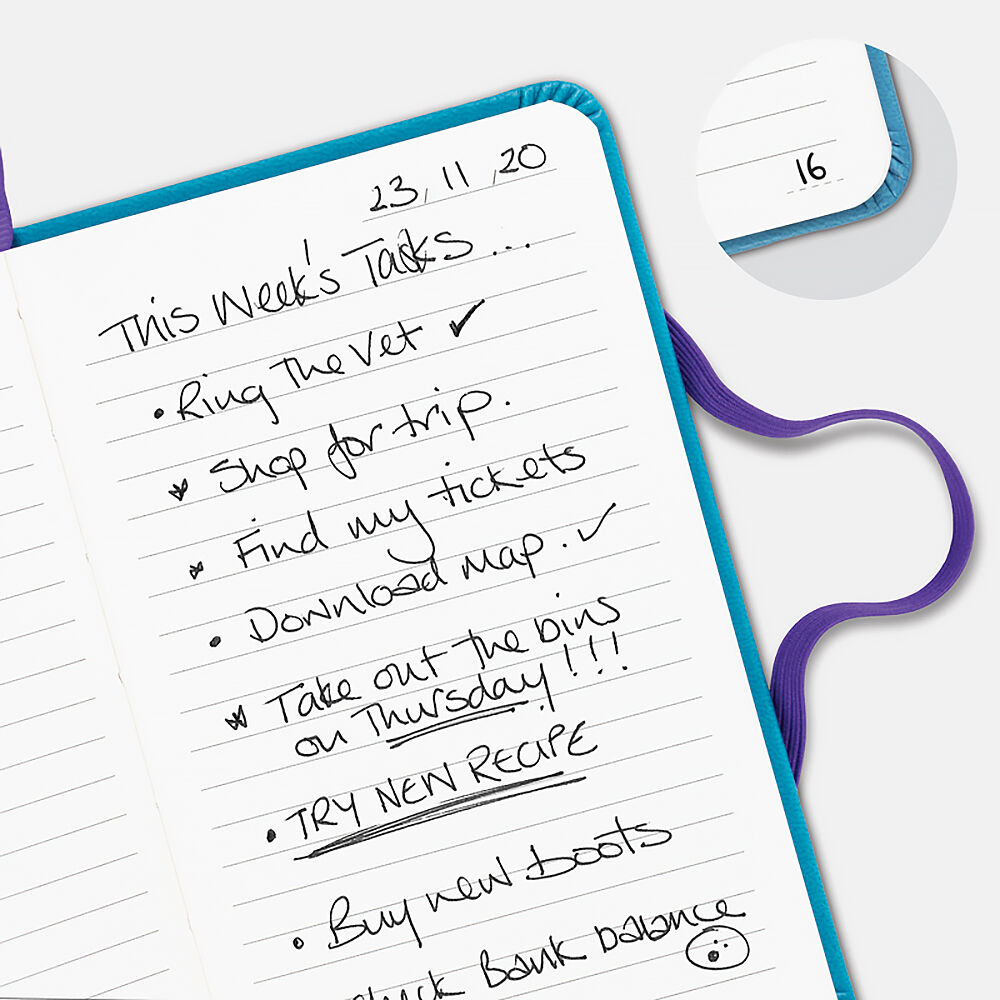 23, 11, 20
This Week's Tasks ...
• Ring The Vet ✓
* Shop for trip.
* Find my tickets
• Download Map. ✓
* Take out the bins
on Thursday!!!!
• TRY NEW RECIPE
• Buy new boots
Check Bank balance
16